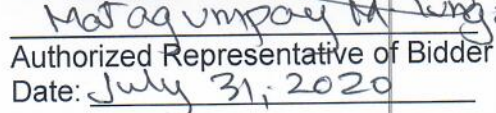 Matagumpay M
Authorized Representative of Bidder
Date: July 31, 2020